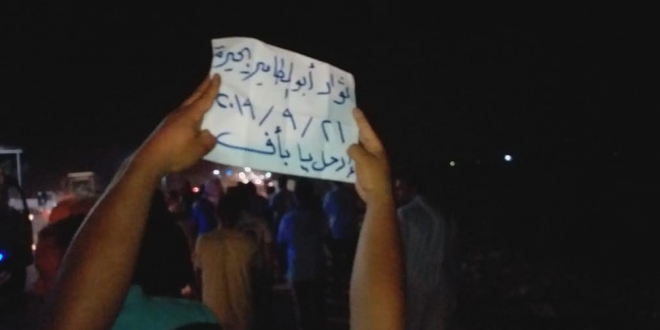 ثوار أبو المطامير بحيرة
٢٠١٩/٩/٢١
ارحل يا بأف